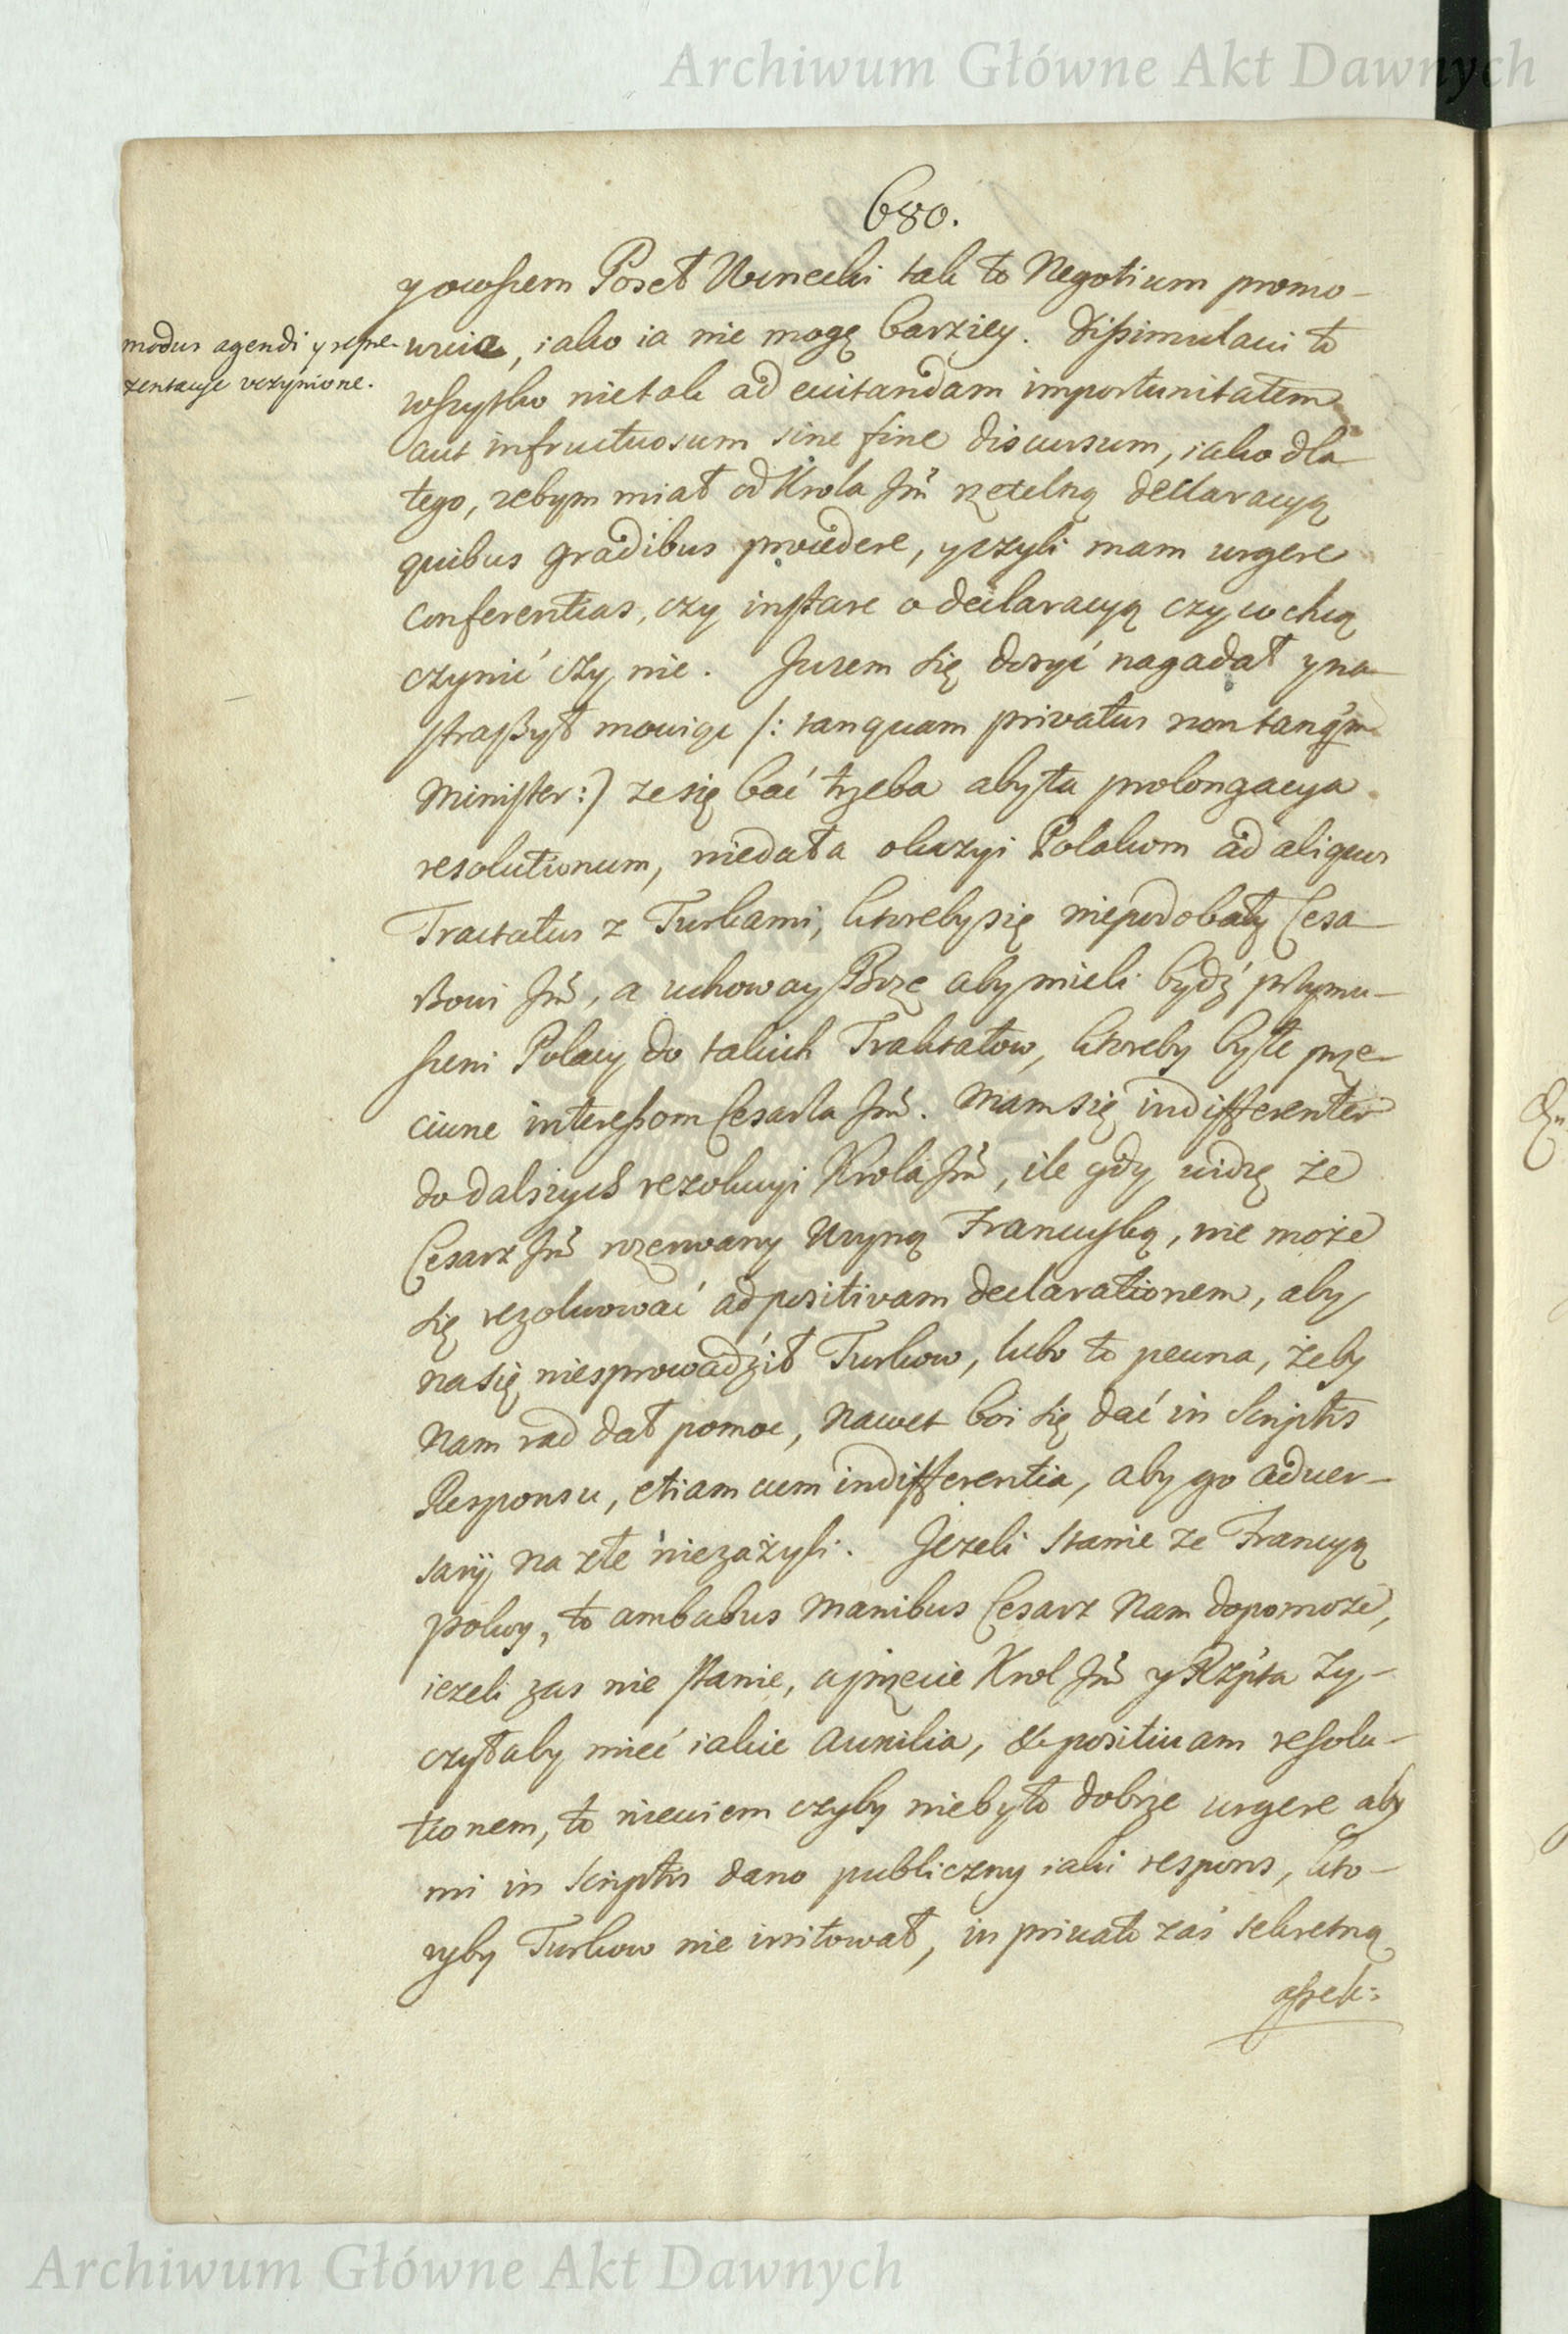 Archiwum Główne Akt Dawnych
680.
modus agendi y repre-
zentacye uczynione.
y owszem Poseł Wenecki tak to Negotium promo-
wuie, iako ia nie mogę barziey. Dissimulavi to
wszytko nie tak ad evitandam importunitatem
aut infructuosum sine fine discursum, iako dla
tego, zebym miał od Krola Jm̃ rzetelną declaracyą
quibus gradibus procedere, y czyli mam urgere
conferentias, czy instare o declaracyą czy co chcą
czynić czy nie. Jużem się dosyć nagadał y na-
straszył mowiąc /: tanquam privatus non tanq̃m
Minister:) ze się bać trzeba aby ta prolongacya
resolutionum, nie dała okazyi Polakom ad aliquos
Tractatus z Turkami, ktoreby się nie podobały Cesa-
rzowi Jm̃, a uchoway Boze aby mieli bydź przymu-
szeni Polacy do takich Traktatow, ktoreby byłe prze-
ciwne interessom Cesarza Jm̃. Mam się indifferenter
do dalszych rezolucyi Krola Jm̃, ile gdy widzę że
Cesarz Jm̃ rozerwany Woyną Francuską, nie może
się rezolwować ad positivam declarationem, aby
na się nie sprowadźił Turkow, lubo to pewna, żeby
Nam rad dał pomoc, Nawet boi się dać in Scriptis
Responsu, etiam cum indifferentia, aby go adver-
sarij na złe nie zażyli. Jezeli stanie ze Francyą
pokoy, to ambabus manibus Cesarz Nam dopomoże,
iezeli zas nie stanie, a przecie Krol Jm̃ y Rzp̃ta Zy-
czyłaby mieć iakie auxilia, & positivam resolu-
tionem, to niewiem czyby nie było dobrze urgere aby
mi in Scriptis dano publiczny iaki respons, kto-
ryby Turkow nie irritował, in privato zaś sekretną
assek:
Archiwum Główne Akt Dawnych